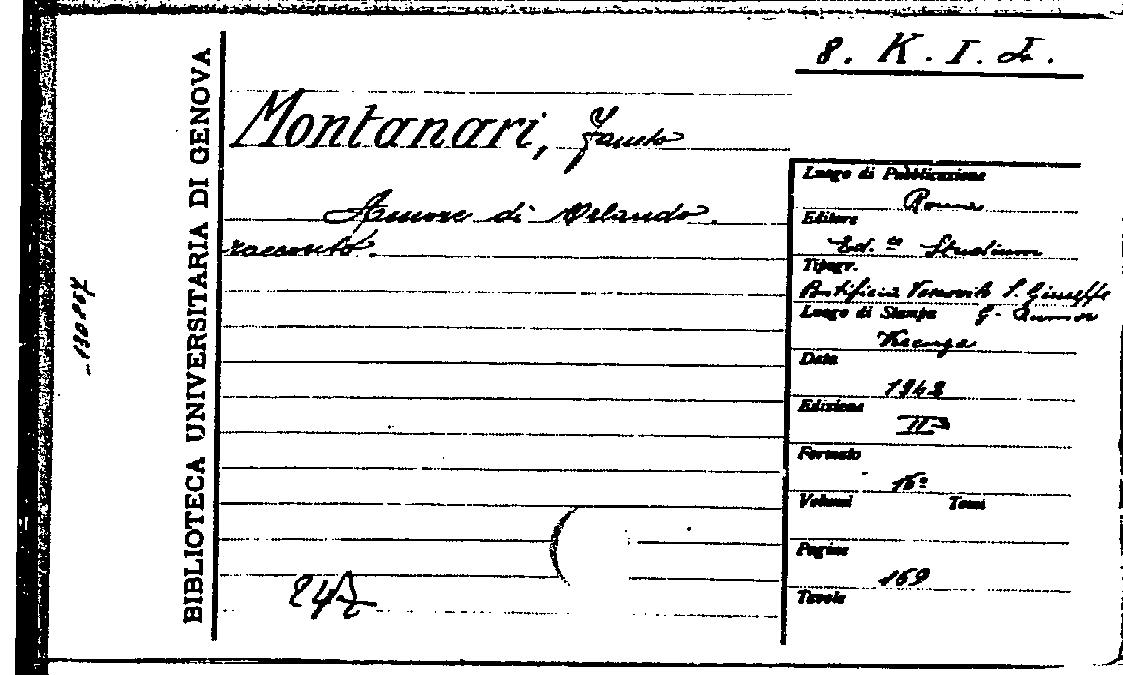 8. K. I. I.
BIBLIOTECA UNIVERSITARIA DI GENOVA
Montanari, Fausto
Amore di Orlando.
racconto.
Luogo di Pubblicazione
Roma
Editore
Ed. Studium
Tipogr.
S. Giuseppe
Luogo di Stampa G. Rumor
Vicenza
Data
1942
Edizione
IIa
Formato
16º
Volumi Tomi
Pagine
169
Tavole